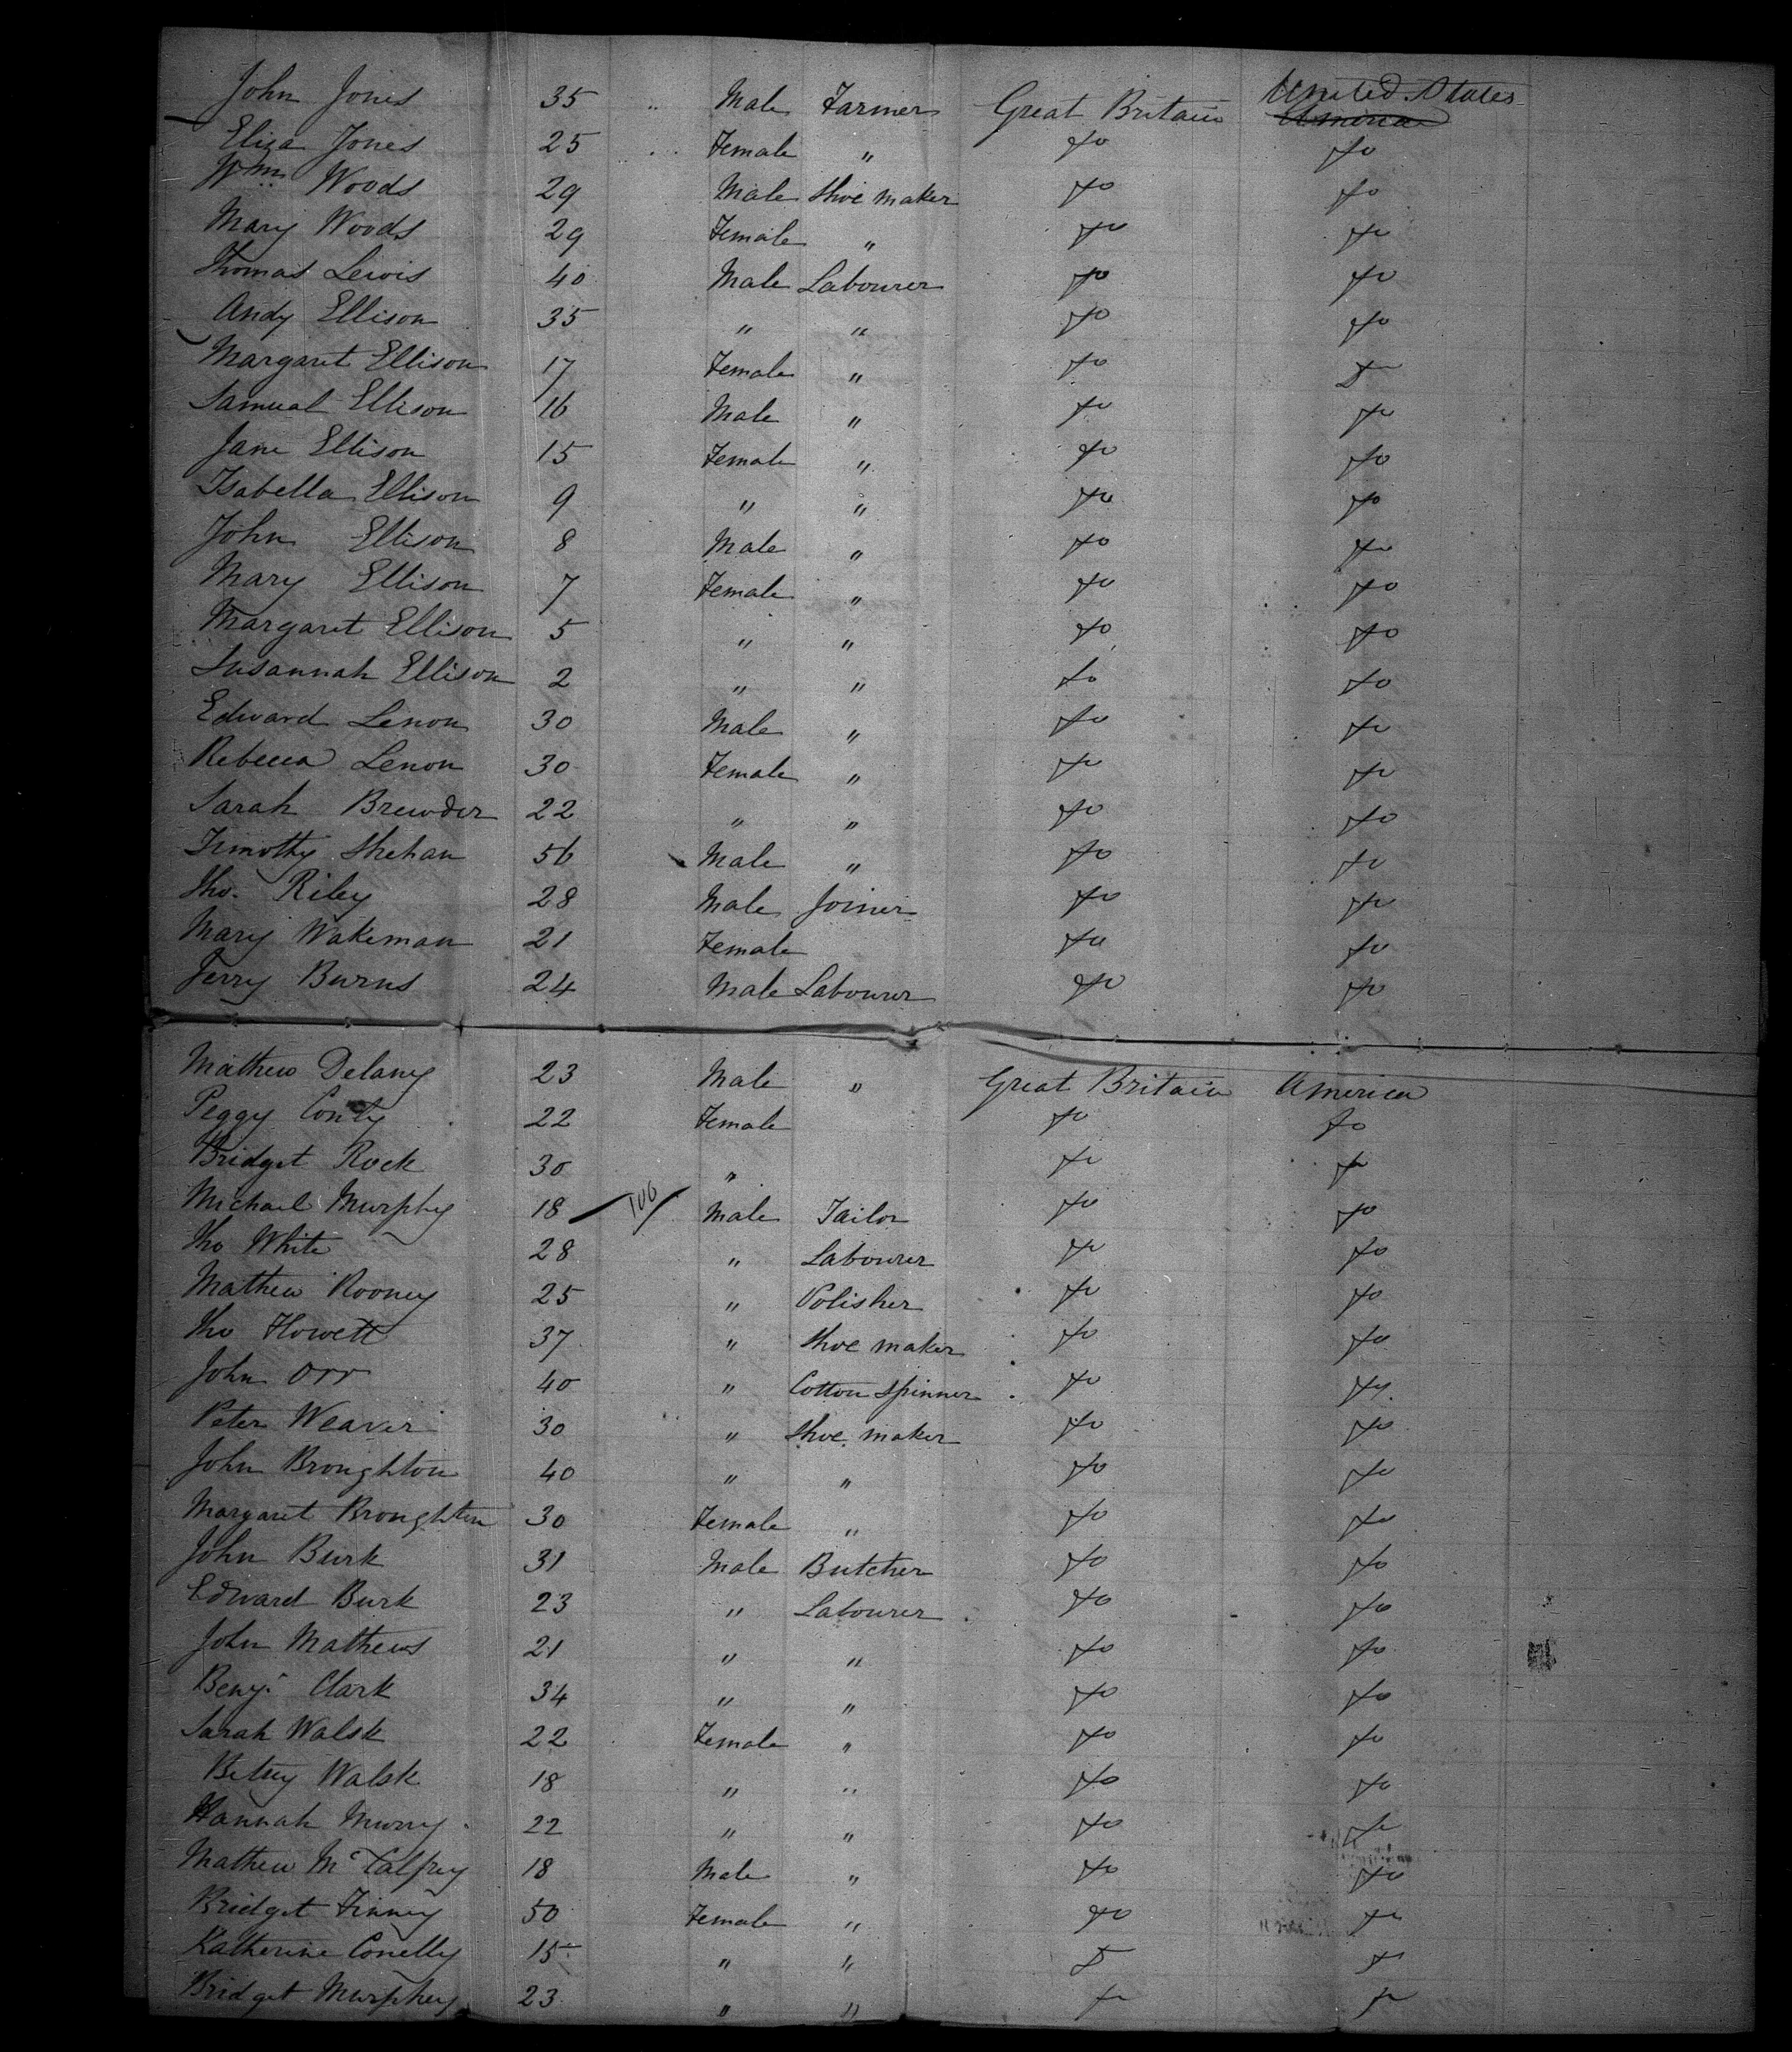 John Jones 35 " Male Farmer Great Britain United States
America
Eliza Jones 25 Female " do do
Wm Woods 29 Male Shoe maker do do
Mary Woods 29 Female " do do
Thomas Lewis 40 Male Labourer do do
Andy Ellison 35 " " do do
Margaret Ellison 17 Female " do do
Samual Ellison 16 Male " do do
Jane Ellison 15 Female " do do
Isabella Ellison 9 " " do do
John Ellison 8 Male " do do
Mary Ellison 7 Female " do do
Margaret Ellison 5 " " do do
Susannah Ellison 2 " " do do
Edward Lenon 30 Male " do do
Rebecca Lenon 30 Female " do do
Sarah Brewder 22 " " do do
Timothy Shehan 56 Male " do do
Tho. Riley 28 Male Joiner do do
Mary Wakeman 21 Female do do
Jerry Burns 24 Male Labourer do do
Mathew Delany 23 Male " Great Britain America
Peggy 22 Female do do
Bridget Rock 30 " do do
Michael Murphy 18 100 Male Tailor do do
Tho White 28 " Labourer do do
Mathew Rooney 25 " Polisher do do
Tho Howett 37 " Shoe maker do do
John Orr 40 " Cotton Spinner do do
Peter Weaver 30 " Shoe maker do do
John Broughton 40 " " do do
Margaret Broughton 30 Female " do do
John Burk 31 Male Butcher do do
Edward Burk 23 " Labourer do do
John Mathews 21 " " do do
Benj. Clark 34 " " do do
Sarah Walsh 22 Female " do do
Betsey Walsh 18 " " do do
Hannah Murry 22 " " do do
Mathew McCalfrey 18 Male " do do
Bridget Finney 50 Female " do do
Katherine Conelly 15 " " do do
Bridget Murphey 23 " " do do